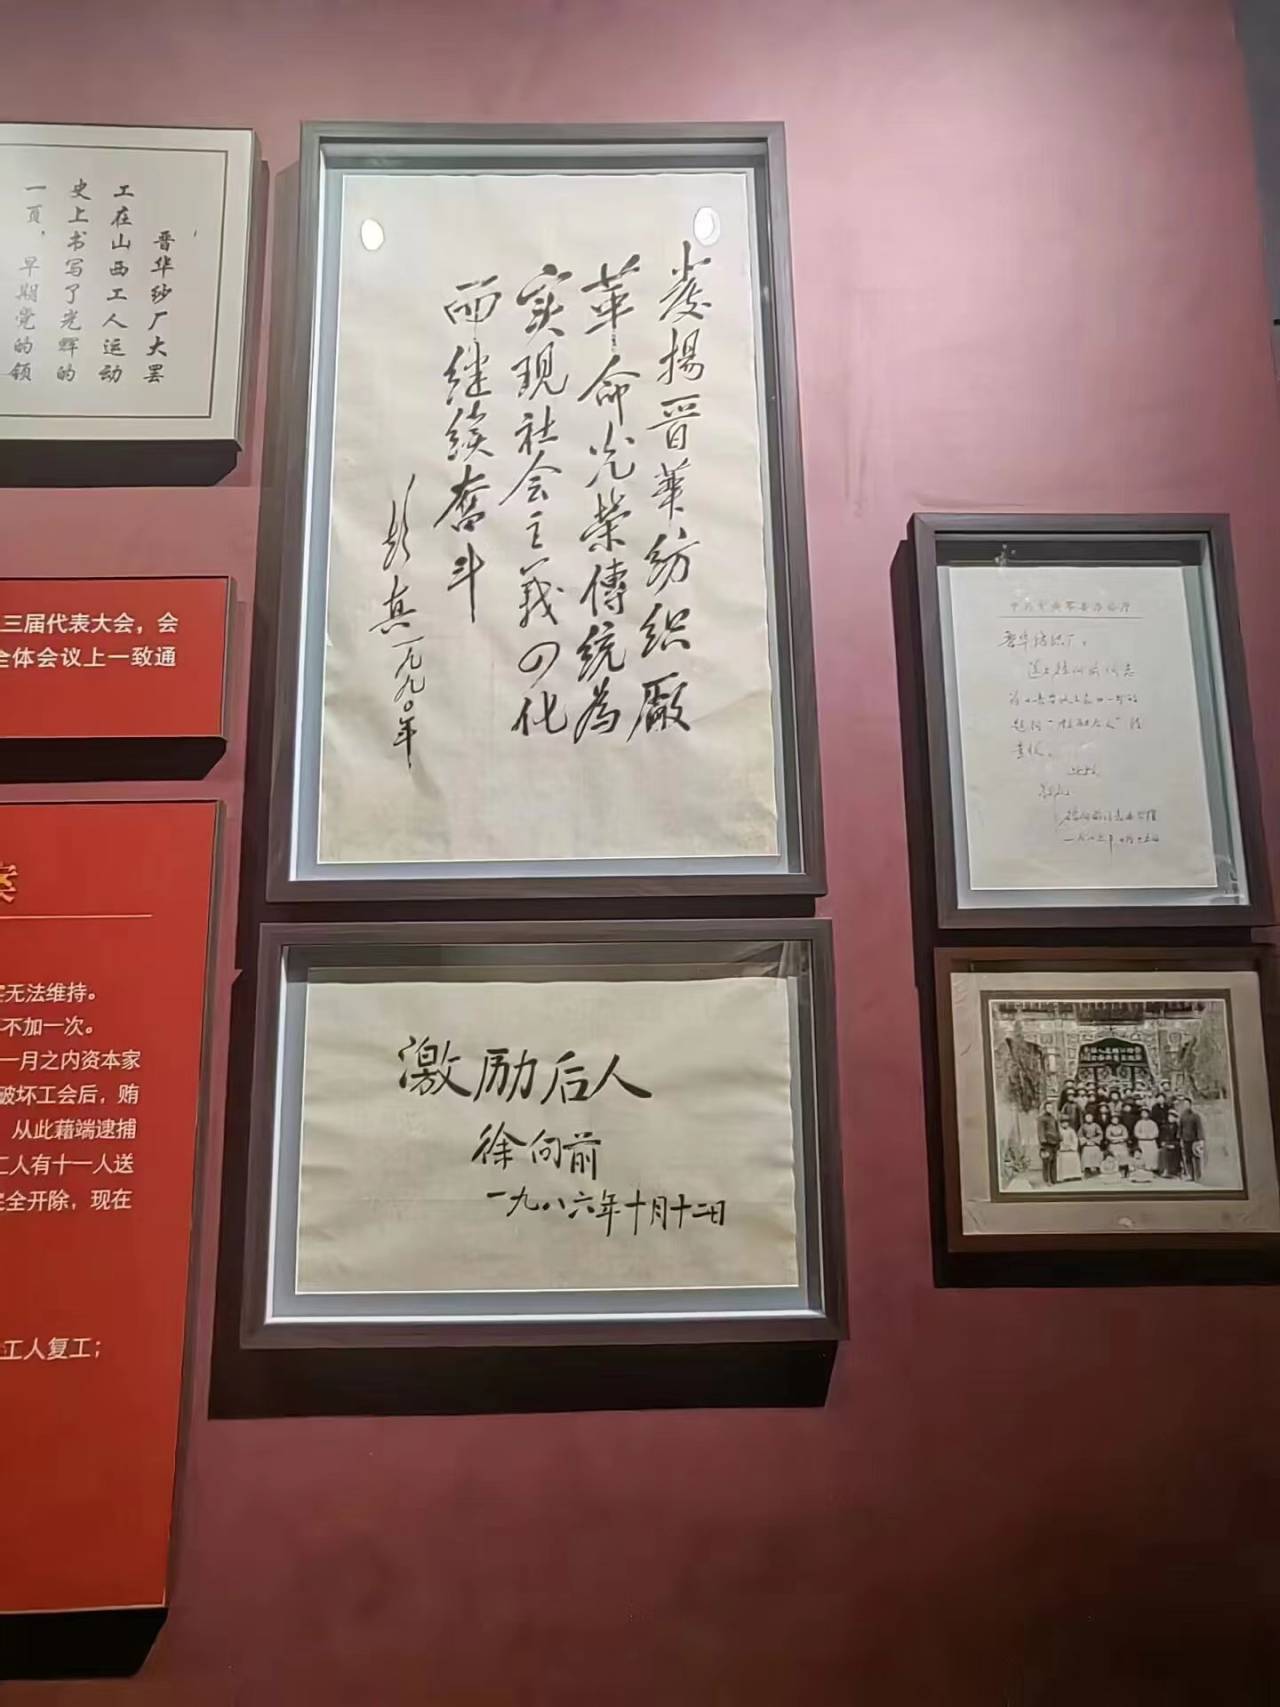 晋华纱厂大罢
工在山西工人运动
史上书写了光辉的
一页，早期党的领
发揚晋华纺织廠
革命光荣傳統為
实现社会主義四化
而继续奋斗
彭真一九九〇年
三届代表大会，会
全体会议上一致通
案
无法维持。
不加一次。
一月之内资本家
破坏工会后，贿
从此藉端逮捕
工人有十一人送
完全开除，现在
工人复工；
激励后人
徐向前
一九八六年十月十二日
晋华纺织厂：
送上徐向前同志
题词“激励后人”请
查收。
此致
敬礼